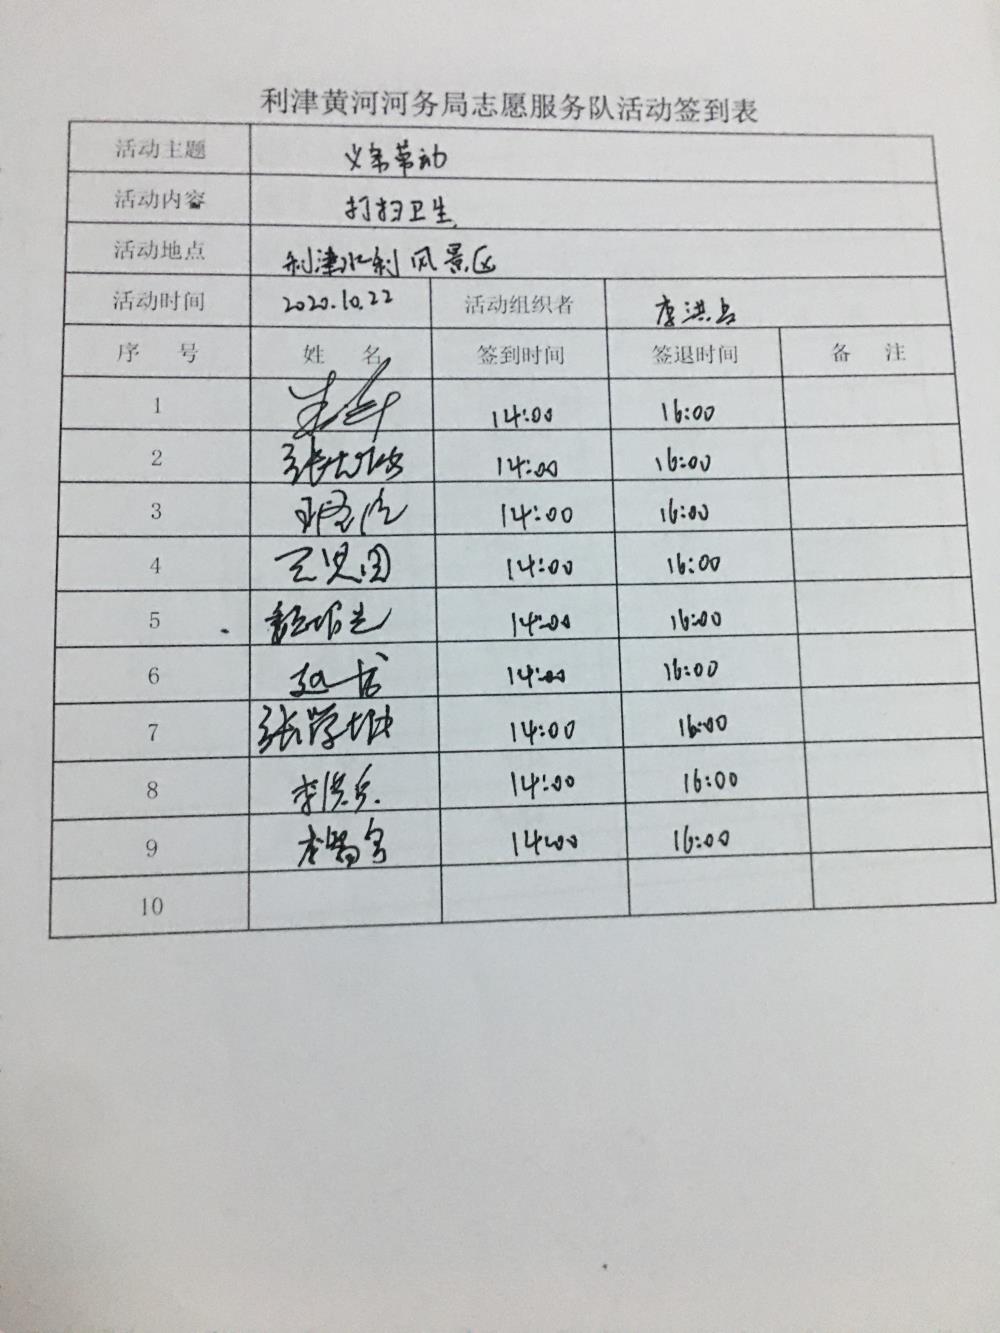 利津黄河河务局志愿服务队活动签到表
活动主题 义务劳动
活动内容 打扫卫生
活动地点 利津水利风景区
活动时间 2020.10.22 活动组织者 李洪兵
序 号 姓 名 签到时间 签退时间 备 注
1 14:00 16:00
2 14:00 16:00
3 14:00 16:00
4 14:00 16:00
5 14:00 16:00
6 14:00 16:00
7 张学坤 14:00 16:00
8 李洪兵 14:00 16:00
9 14:00 16:00
10